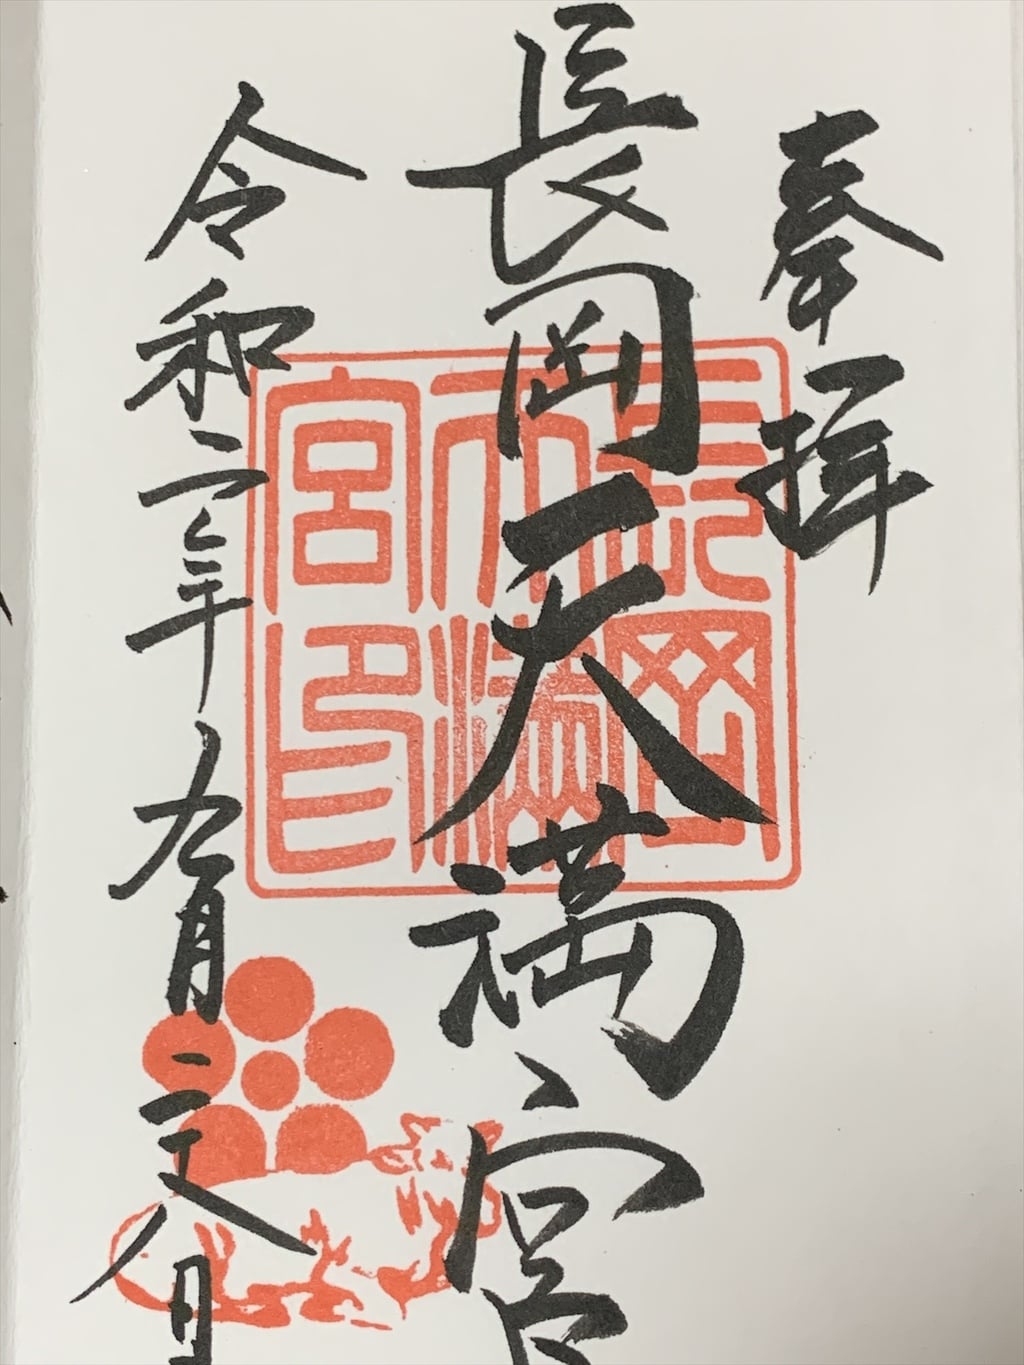 奉拝
長岡天満宮
令和二年九月二十八日
長岡
天満
宮印